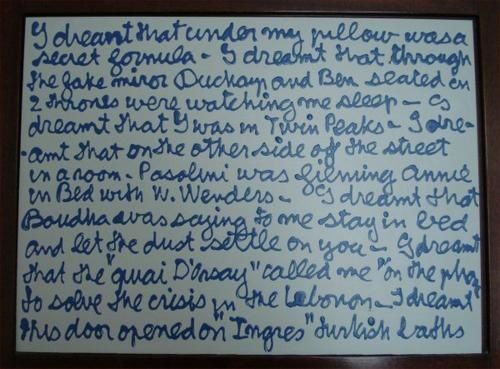 I dreamt that under my pillow was a
secret formula - I dreamt that through
the fake miror Duchamp and Ben seated on
2 thrones were watching me sleep - I
dreamt that I was in Twin Peaks - I dre-
-amt that on the other side of the street
in a room - Pasolini was filming Annie
in Bed with W. Wenders - I dreamt that
Boudha was saying to me stay in bed
and let the dust settle on you - I dreamt
that the "quai D'Orsay" called me "on the phone"
to solve the crisis in the Lebonon - I dreamt
this door opened on "Ingres" turkish baths